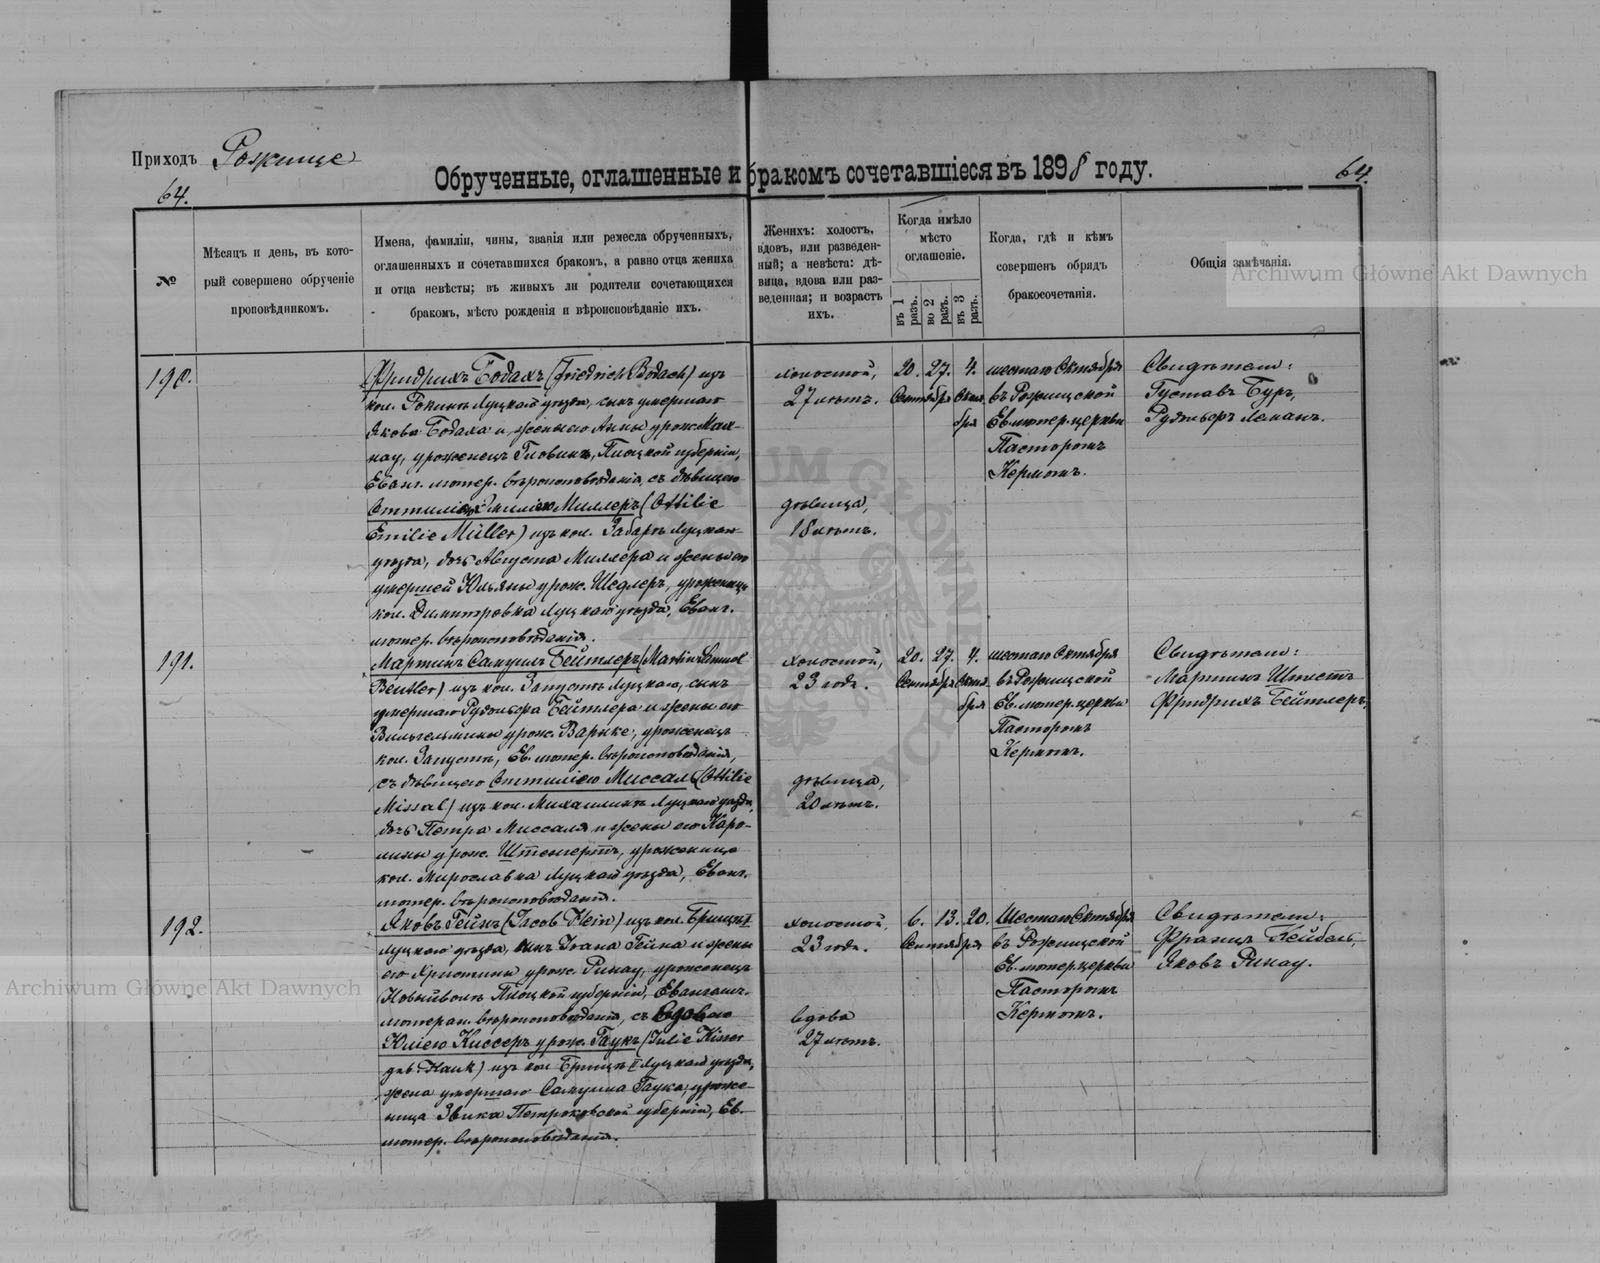 Приходъ Рожище
64.
Обрученные, оглашенные и бракомъ сочетавшіеся въ 1898 году.
64.
№
Мѣсяцъ и день, въ кото-
рый совершено обрученіе
проповѣдникомъ.
Имена, фамиліи, чины, званія или ремесла обрученныхъ,
оглашенныхъ и сочетавшихся бракомъ, а равно отца жениха
и отца невѣсты; въ живыхъ ли родители сочетающихся
бракомъ, мѣсто рожденія и вѣроисповѣданіе ихъ.
Женихъ: холостъ,
вдовъ, или разведен-
ный; а невѣста: дѣ-
вица, вдова или раз-
веденная; и возрастъ
ихъ.
Когда имѣло
мѣсто
оглашеніе.
въ 1 разъ.
во 2 разъ.
въ 3 разъ.
Когда, гдѣ и кѣмъ
совершенъ обрядъ
бракосочетанія.
Общія замѣчанія.
Archiwum Główne Akt Dawnych
190.
Фридрихъ Бодахъ (Friedrich Bodach) изъ
кол. Луцкаго уѣзда, сынъ умершаго
Якова Бодаха и жены его Анны урож.
уроженецъ Плоцкой губерніи,
Еванг. лютер. вѣроисповѣданія, съ дѣвицею
Оттиліею Эмиліею Миллеръ (Ottilie
Emilie Müller) изъ кол. Луцкаго
уѣзда, дочь Августа Миллера и жены его
умершей Юльяны урож. Шедлеръ, уроженица
кол. Димитровка Луцкаго уѣзда, Еванг.
лютер. вѣроисповѣданія.
холостой,
27 лѣтъ.
дѣвица,
18 лѣтъ.
20. 27. 4.
Сентября Октя-
бря
шестаго Октября
въ Рожищской
Ев. лютер. церкви
Пасторомъ
Кермомъ.
Свидѣтели:
Густавъ Буръ,
Рудольфъ Леманъ.
191.
Мартинъ Самуилъ Бейтлеръ (Martin Samuel
Beutler) изъ кол. Запустъ Луцкаго, сынъ
умершаго Рудольфа Бейтлера и жены его
Вильгельмины урож. Варнке, уроженецъ
кол. Запустъ, Ев. лютер. вѣроисповѣданія,
съ дѣвицею Оттиліею Миссаль (Ottilie
Missal) изъ кол. Михалинъ Луцкаго уѣзда,
дочь Петра Миссаля и жены его Каро-
лины урож. уроженица
кол. Мирославка Луцкаго уѣзда, Еванг.
лютер. вѣроисповѣданія.
холостой,
23 года.
дѣвица,
20 лѣтъ.
20. 27. 4.
Сентября Октя-
бря
шестаго Октября
въ Рожищской
Ев. лютер. церкви
Пасторомъ
Кермомъ.
Свидѣтели:
Мартинъ
Фридрихъ Бейтлеръ,
192.
Яковъ Гейнъ (Jacob Hein) изъ кол.
Луцкаго уѣзда, сынъ Ивана Гейна и жены
его Христины урож. Ринау, уроженецъ
Плоцкой губерніи, Евангел.
лютеран. вѣроисповѣданія, съ вдовою
Юліею Киссеръ урож. Гаукъ (Julie Kisser
geb. Hauk) изъ кол. Луцкаго уѣзда,
жена умершаго Самуила Гаука, уроже-
ница Петроковской губерніи, Ев.
лютер. вѣроисповѣданія.
холостой,
23 года.
вдова
27 лѣтъ.
6. 13. 20.
Сентября
Шестаго Октября
въ Рожищской
Ев. лютер. церкви
Пасторомъ
Кермомъ.
Свидѣтели:
Францъ Кейбель,
Яковъ Ринау.
Archiwum Główne Akt Dawnych